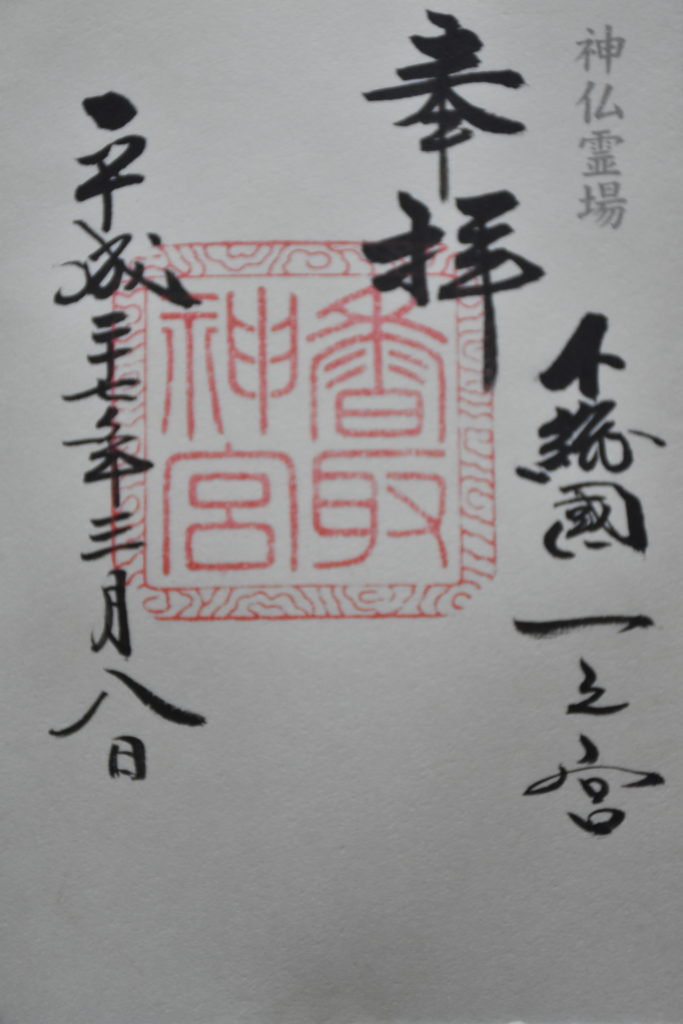 神仏霊場
下総國一之宮
奉拝
香取
神宮
平成二十七年三月八日